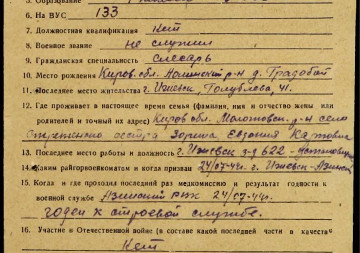 5. Образование
6. На ВУС 133
7. Должностная квалификация Нет
8. Военное звание не служил
9. Гражданская специальность Слесарь
10. Место рождения Киров. обл. Нолинский р-н д. Градобои
11. Последнее место жительства г. Ижевск, Голублева, 41.
12. Где проживает в настоящее время семья (фамилия, имя и отчество жены или
родителей и точный их адрес) Киров. обл. Молотовск. р-н село
сестра Зорина Евгения
13. Последнее место работы и должность г. Ижевск з-д 622
14. Каким райгорвоенкоматом и когда призван 24/07-44г. г. Ижевск Азинск
15. Когда и где проходил последний раз медкомиссию и результат годности к
военной службе Азинский РВК 24/07-44г.
годен к строевой службе.
16. Участие в Отечественной войне (в составе какой последней части в качестве
Нет